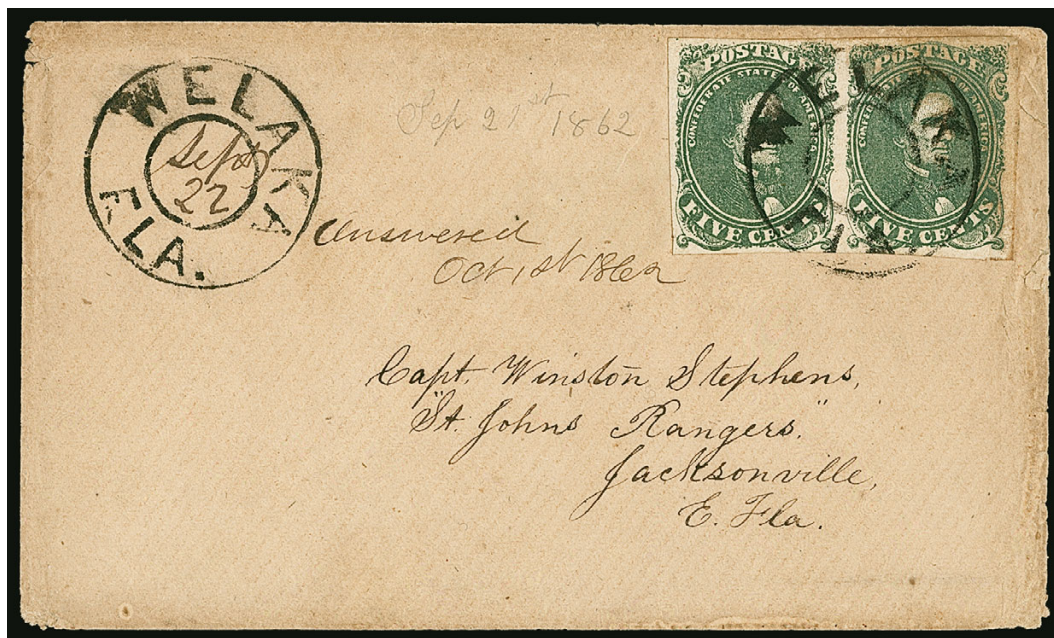 WELAKA
Sept
22
FLA.
Sep 21st 1862
POSTAGE
CONFEDERATE STATES OF AMERICA
FIVE CENTS
POSTAGE
CONFEDERATE STATES OF AMERICA
FIVE CENTS
WELAKA
Answered
Oct, 1st 1862
Capt. Winston Stephens,
"St. Johns Rangers."
Jacksonville,
E. Fla.